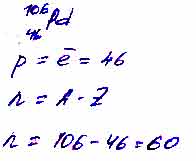 ¹⁰⁶₄₆Pd
p = ē = 46
n = A - Z
n = 106 - 46 = 60